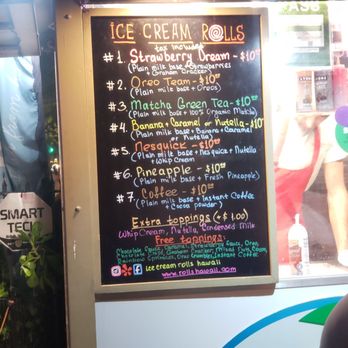 ICE CREAM ROLLS
tax included
#1. Strawberry Dream - $10⁰⁰
(Plain milk base + Strawberries
+ Graham Cracker)
#2. Oreo Team - $10⁰⁰
(Plain milk base + Oreos)
#3 Matcha Green Tea - $10⁰⁰
(Plain milk base + 100% Organic Matcha)
#4. Banana + Caramel or Nutella - $10⁰⁰
(Plain milk base + Banana + Caramel
or Nutella)
#5. Nesquick - $10⁰⁰
(Plain milk base + Nesquick + Nutella
+ Whip Cream
#6. Pineapple - $10⁰⁰
(Plain milk base + Fresh Pineapple)
#7 Coffee - $10⁰⁰
(Plain milk base + Instant Coffee
+ Cocoa powder)
Extra toppings (+$1.00)
Whip Cream, Nutella, Condensed Milk
Free toppings:
Chocolate Sauce, Caramel, Strawberry Sauce, Oreo,
Chocolate Chips, Graham Cracker, Mixed Nuts,
Rainbow Sprinkles, Oreo Crumbles, Instant Coffee
ice cream rolls hawaii
www.rollshawaii.com
SMART
TECH